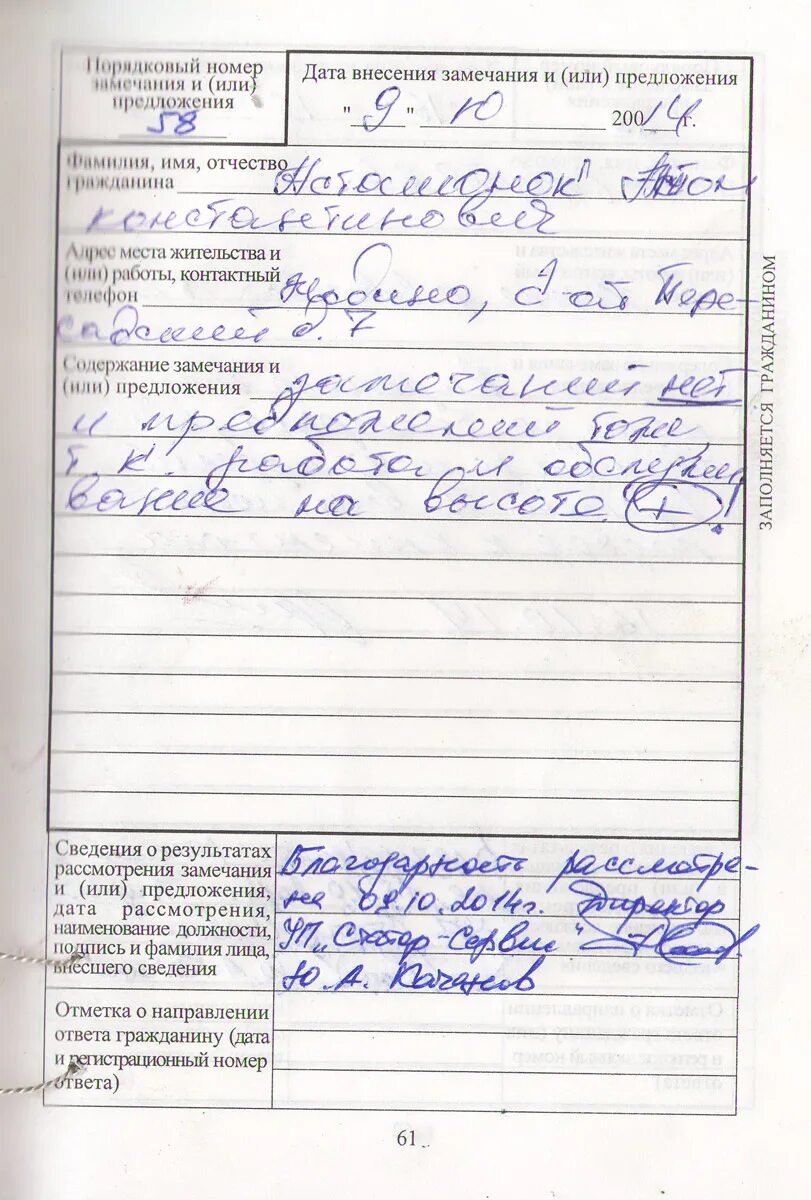 Порядковый номер
замечания и (или)
предложения
58
Дата внесения замечания и (или) предложения
" 9 " 10 20014 г.
Фамилия, имя, отчество
гражданина
Константинович
Адрес места жительства и
(или) работы, контактный
телефон
д. 7
Содержание замечания и
(или) предложения замечаний нет
и предложений тоже,
т. к. работа и обслужи
вание на высоте. + !
ЗАПОЛНЯЕТСЯ ГРАЖДАНИНОМ
Сведения о результатах
рассмотрения замечания
и (или) предложения,
дата рассмотрения,
наименование должности,
подпись и фамилия лица,
внесшего сведения
Благодарность рассмотре-
на 09.10.2014г. Директор
УП „Статор Сервис"
Ю. А. Качанов
Отметка о направлении
ответа гражданину (дата
и регистрационный номер
ответа)
61